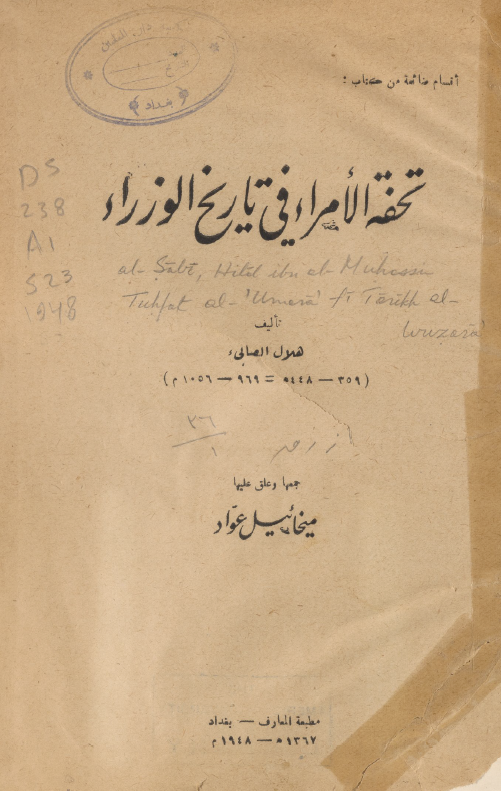 بغداد
أقسام ضائعة من كتاب :
تحفة الأمراء في تاريخ الوزراء
DS
238
A1
S23
1948
al-Ṣābī, Hilāl ibn al-Muḥassin
Tuḥfat al-'Umarā' fī Tārīkh al-
Wuzarā'
تأليف
هلال الصابىء
(٣٥٩ — ٤٤٨ه = ٩٦٩ — ١٠٥٦ م)
٣٦
١
جمعها وعلق عليها
ميخائيل عوّاد
مطبعة المعارف — بغداد
١٣٦٧ه — ١٩٤٨ م